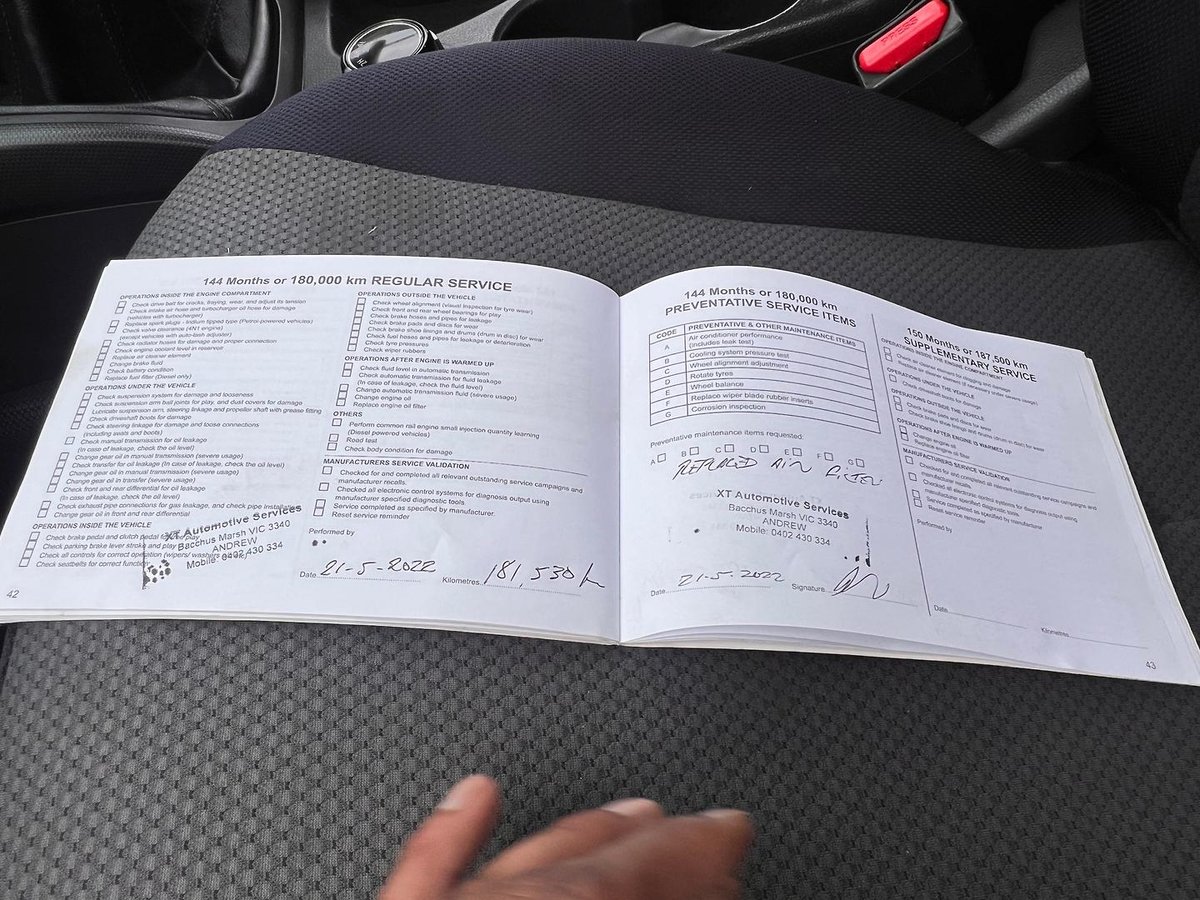 144 Months or 180,000 km REGULAR SERVICE
OPERATIONS INSIDE THE ENGINE COMPARTMENT
Check drive belt for cracks, fraying, wear, and adjust its tension
Check intake air hose and turbocharger oil hose for damage
(vehicles with turbocharger)
Replace spark plugs - Iridium tipped type (Petrol-powered vehicles)
Check valve clearance (4N1 engine)
(except vehicles with auto-lash adjuster)
Check radiator hoses for damage and proper connection
Check engine coolant level in reservoir
Replace air cleaner element
Change brake fluid
Check battery condition
Replace fuel filter (Diesel only)
OPERATIONS UNDER THE VEHICLE
Check suspension system for damage and looseness
Check suspension arm ball joints for play, and dust covers for damage
Lubricate suspension arm, steering linkage and propeller shaft with grease fitting
Check driveshaft boots for damage
Check steering linkage for damage and loose connections
(including seals and boots)
Check manual transmission for oil leakage
(In case of leakage, check the oil level)
Change gear oil in manual transmission (severe usage)
Check transfer for oil leakage (In case of leakage, check the oil level)
Change gear oil in manual transmission (severe usage)
Change gear oil in transfer (severe usage)
Check front and rear differential for oil leakage
(In case of leakage, check the oil level)
Check exhaust pipe connections for gas leakage, and check pipe installation
Change gear oil in front and rear differential
OPERATIONS INSIDE THE VEHICLE
Check brake pedal and clutch pedal for play
Check parking brake lever stroke and play
Check all controls for correct operation (wipers/ washers
Check seatbelts for correct function
XT Automotive Services
Bacchus Marsh VIC 3340
ANDREW
Mobile: 0402 430 334
42
OPERATIONS OUTSIDE THE VEHICLE
Check wheel alignment (visual inspection for tyre wear)
Check front and rear wheel bearings for play
Check brake hoses and pipes for leakage
Check brake pads and discs for wear
Check brake shoe linings and drums (drum in disc) for wear
Check fuel hoses and pipes for leakage or deterioration
Check tyre pressures
Check wiper rubbers
OPERATIONS AFTER ENGINE IS WARMED UP
Check fluid level in automatic transmission
Check automatic transmission for fluid leakage
(In case of leakage, check the fluid level)
Change automatic transmission fluid (severe usage)
Change engine oil
Replace engine oil filter
OTHERS
Perform common rail engine small injection quantity learning
(Diesel powered vehicles)
Road test
Check body condition for damage
MANUFACTURERS SERVICE VALIDATION
Checked for and completed all relevant outstanding service campaigns and
manufacturer recalls.
Checked all electronic control systems for diagnosis output using
manufacturer specified diagnostic tools.
Service completed as specified by manufacturer.
Reset service reminder
Performed by
Date 21-5-2022 Kilometres 181,530 km
144 Months or 180,000 km
PREVENTATIVE SERVICE ITEMS
CODE PREVENTATIVE & OTHER MAINTENANCE ITEMS
A Air conditioner performance
(includes leak test)
B Cooling system pressure test
C Wheel alignment adjustment
D Rotate tyres
E Wheel balance
F Replace wiper blade rubber inserts
G Corrosion inspection
Preventative maintenance items requested:
A B C D E F G
REPLACED AIR FILTER
XT Automotive Services
Bacchus Marsh VIC 3340
ANDREW
Mobile: 0402 430 334
Date 21-5-2022 Signature
150 Months or 187,500 km
SUPPLEMENTARY SERVICE
OPERATIONS INSIDE THE ENGINE COMPARTMENT
Check air cleaner element for clogging and damage
OPERATIONS UNDER THE VEHICLE
Check driveshaft boots for damage
OPERATIONS OUTSIDE THE VEHICLE
Check brake pads and discs for wear
Check brake shoe linings and drums (drum in disc) for wear
OPERATIONS AFTER ENGINE IS WARMED UP
Change engine oil
Replace engine oil filter
MANUFACTURERS SERVICE VALIDATION
Checked for and completed all relevant outstanding service campaigns and
manufacturer recalls.
Checked all electronic control systems for diagnosis output using
manufacturer specified diagnostic tools.
Service completed as specified by manufacturer
Reset service reminder
Performed by
Date Kilometres
43
PRESS